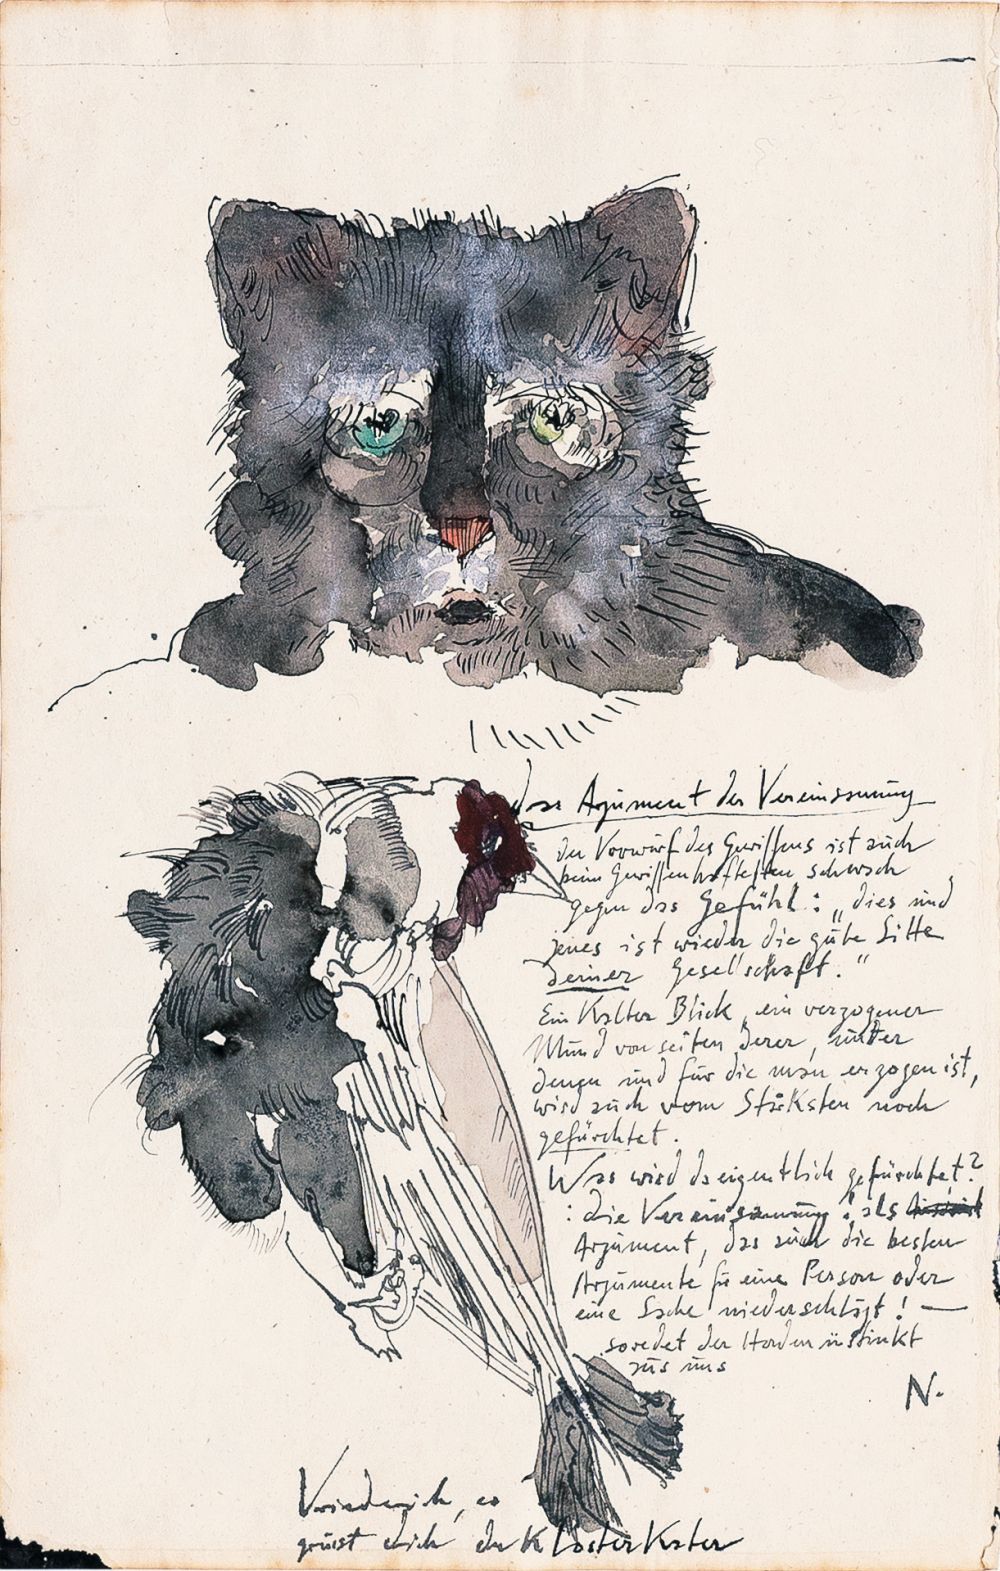 das Argument der Vereinsamung
der Vorwurf des Gewissens ist auch
beim Gewissenhaftesten schwach
gegen das Gefühl: „dies und
jenes ist wieder die gute Sitte
deiner Gesellschaft."
Ein Kalter Blick, ein verzogener
Mund von seiten derer, unter
denen und für die man erzogen ist,
wird auch vom Stärksten noch
gefürchtet.
Was wird da eigentlich gefürchtet?
: die Vereinsamung! als
Argument, das auch die besten
Argumente für eine Person oder
eine Sache niederschlägt! —
so redet der Herdeninstinkt
aus uns
N.
Vriederich, es
grüsst dich der KlosterKater